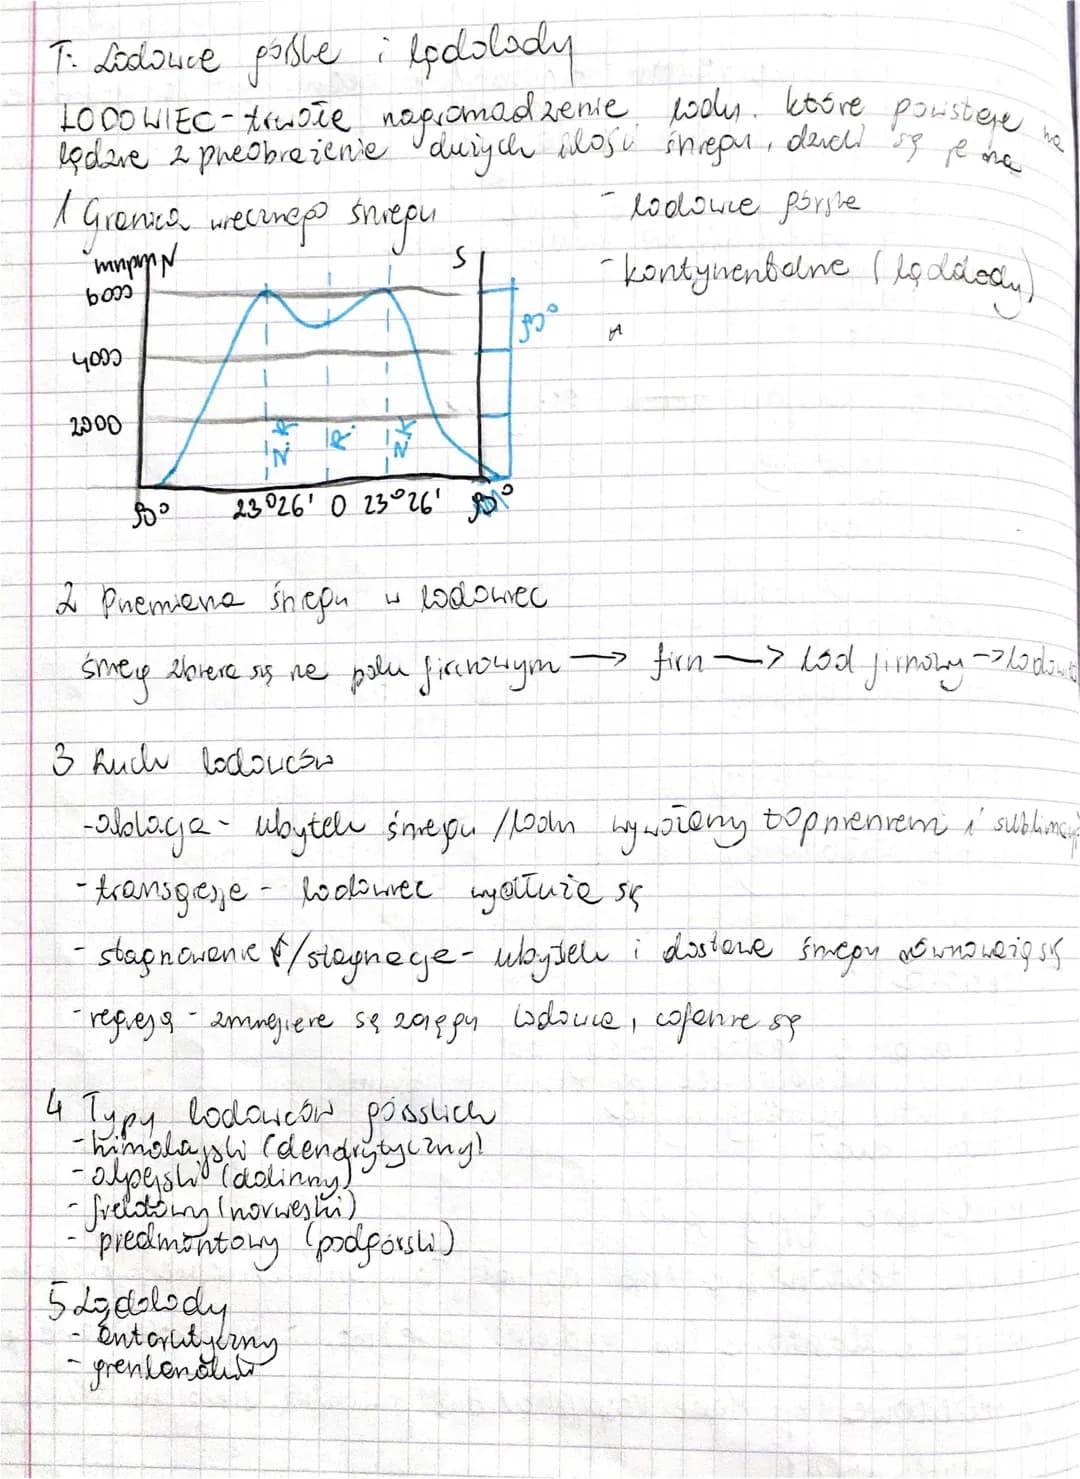 T: Lodowce górskie i lądolody
LODOWIEC - trwałe nagromadzenie lodu, które powstaje na
lądzie z przeobrażenie dużych ilości śniegu, dzieli się je na
- lodowce górskie
- kontynentalne (lądolody)
1 Granica wiecznego śniegu
mnpm N S
6000
4000
2000
90°
Z.R R. Z.K
90° 23°26' 0 23°26' 90°
2 Przemiana śniegu w lodowiec
śnieg zbiera się na polu firnowym → firn → lód firnowy → lodowiec
3 Ruch lodowców
- ablacja - ubytek śniegu / lodu wywołany topnieniem i sublimacją
- transgresje - lodowiec wydłuża się
- stagnowanie /stagnacje - ubytek i dostawa śniegu równoważą się
- regresja - zmniejszenie się zasięgu lodowca, cofanie się
4 Typy lodowców górskich
- himalajski (dendrytyczny)
- alpejski (dolinny)
- fieldowy (norweski)
- piedmontowy (podgórski)
5 Lądolody
- antarktyczny
- grenlandzki